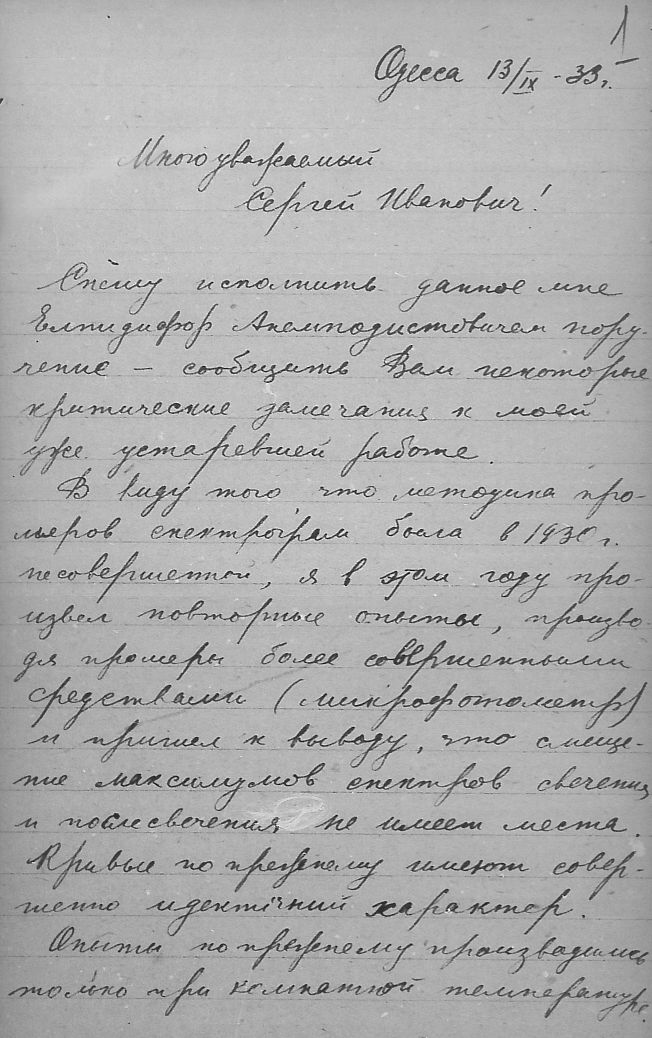 1
Одесса 13/IX - 33 г.
Многоуважаемый
Сергей Иванович!
Спешу исполнить данное мне
Елпидифор Анемподистовичем пору-
чение – сообщить Вам некоторые
критические замечания к моей
уже устаревшей работе.
В виду того что методика про-
меров спектрограм была в 1930 г.
несовершенной, я в этом году про-
извел повторные опыты, произво-
дя промеры более совершенными
средствами (микрофотометр)
и пришел к выводу, что смеще-
ние максимумов спектров свечения
и послесвечения не имеет места.
Кривые по прежнему имеют совер-
шенно идентічний характер.
Опыты по прежнему производились
только при комнатной температуре.